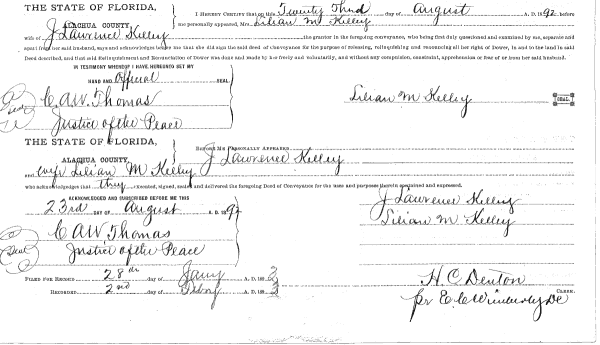 THE STATE OF FLORIDA,
ALACHUA COUNTY.
I HEREBY CERTIFY that on this Twenty Third day of August A. D. 1892 before
me personally appeared, Mrs. Lilian M Kelley
wife of J Lawrence Kelley the grantor in the foregoing conveyance, who being first duly questioned and examined by me, separate and
apart from her said husband, says and acknowledges before me that she did sign the said deed of conveyance for the purpose of releasing, relinquishing and renouncing all her right of Dower, in and to the land in said
Deed described, and that said Relinquishment and Renunciation of Dower was done and made by her freely and voluntarily, and without any compulsion, constraint, apprehension or fear of or from her said husband.
IN TESTIMONY WHEREOF I HAVE HEREUNTO SET MY
HAND AND Official SEAL
C AW Thomas
Seal
Justice of the Peace
Lilian M Kelley
SEAL.
THE STATE OF FLORIDA,
ALACHUA COUNTY.
BEFORE ME PERSONALLY APPEARED J Lawrence Kelley
and wife Lilian M Kelley
who acknowledges that they executed, signed, sealed and delivered the foregoing Deed of Conveyance for the uses and purposes therein contained and expressed.
ACKNOWLEDGED AND SUBSCRIBED BEFORE ME THIS
23rd DAY OF August A. D. 1892
C AW Thomas
Seal
Justice of the Peace
J Lawrence Kelley
Lilian M Kelley
FILED FOR RECORD 28th day of Jany A. D. 1893
RECORDED 2nd day of Feby A. D. 1893
H. C. Denton
CLERK.
per E. C. Wimberly DC